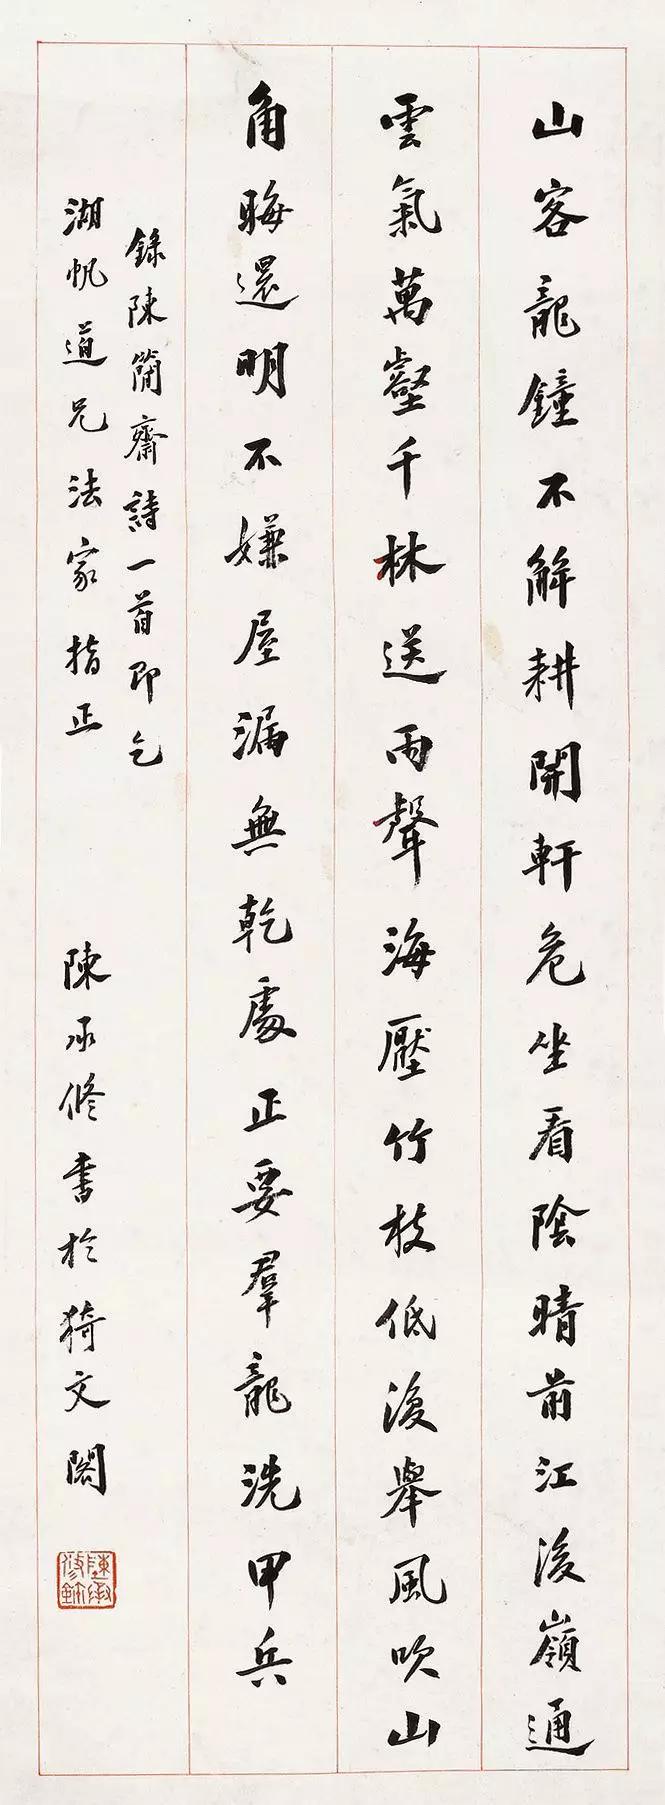 山客龍鐘不解耕開軒危坐看陰晴前江後嶺通
雲氣萬壑千林送雨聲海壓竹枝低復舉風吹山
角晦還明不嫌屋漏無乾處正要羣龍洗甲兵
錄陳簡齋詩一首即乞
湖帆道兄法家指正
陳承修書於猗文閣